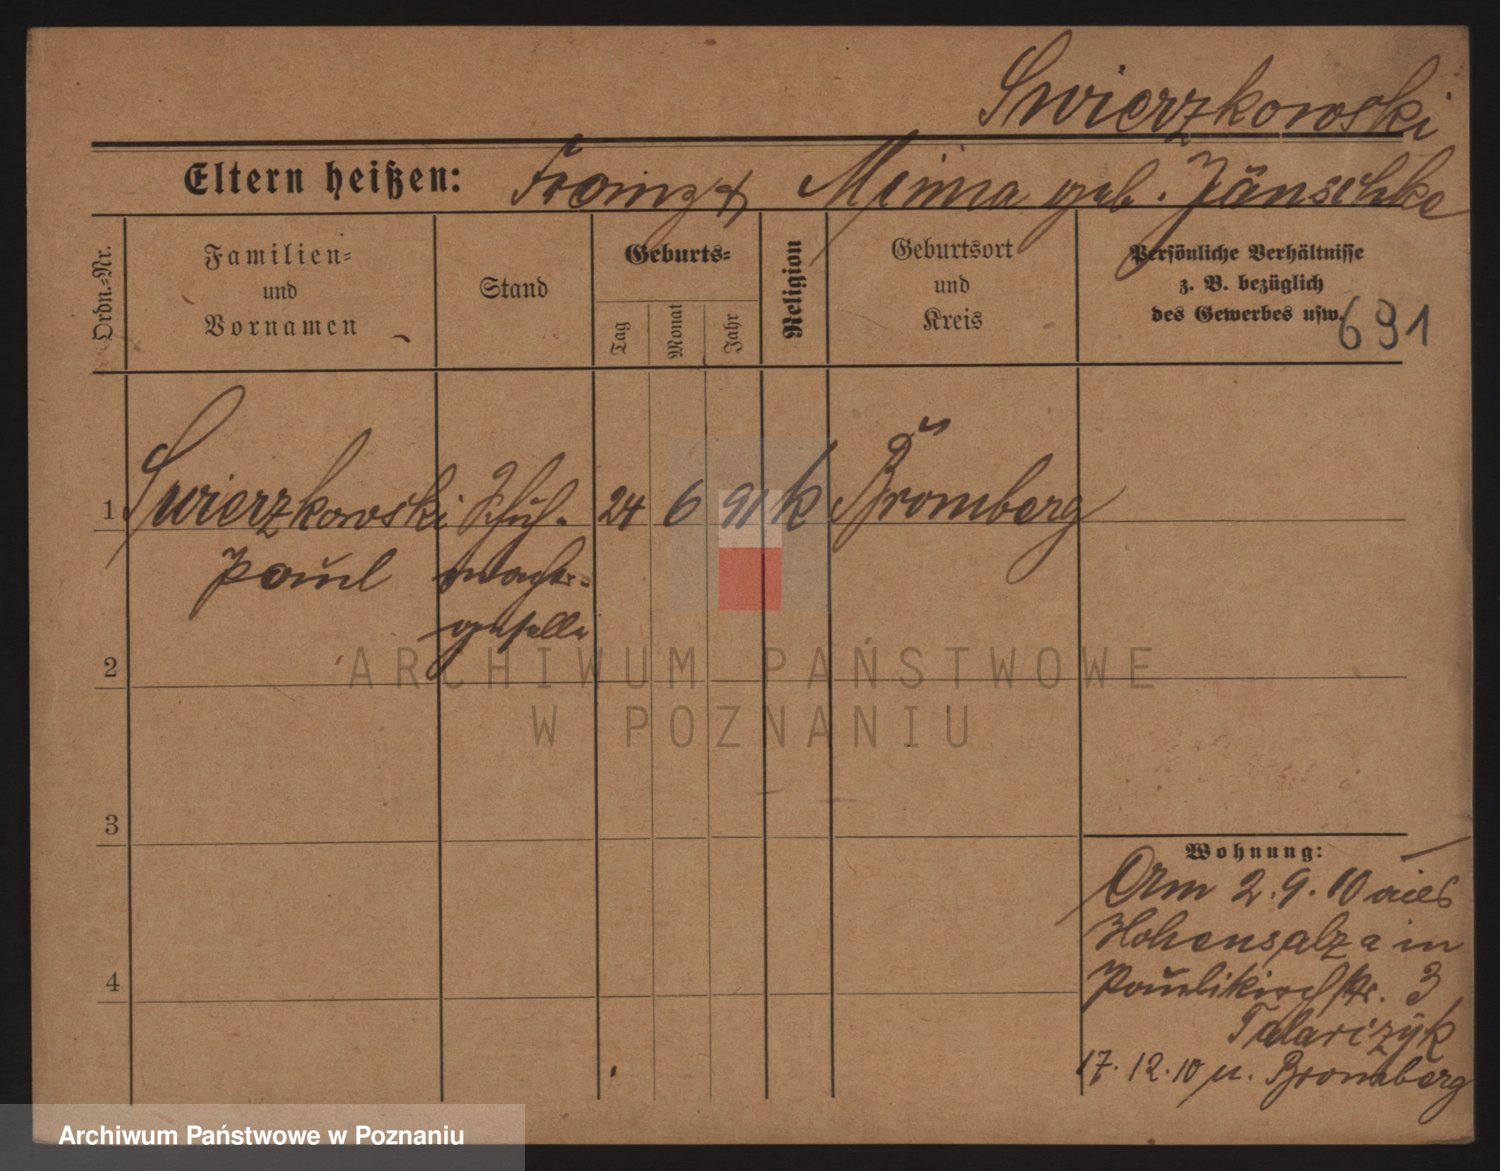 Swierzkowski
Eltern heißen: Franz & Minna geb. Jänschke
Ordn.-Nr.
Familien-
und
Vornamen
Stand
Geburts-
Tag
Monat
Jahr
Religion
Geburtsort
und
Kreis
Persönliche Verhältnisse
z. B. bezüglich
des Gewerbes usw.
691
1 Swierzkowski Schuh- 24 6 91 k Bromberg
Paul macher-
geselle
2
3
4
Wohnung:
Am 2.9.10 aus
Hohensalza in
Paulikirchstr. 3
Talarczyk
17.12.10 n. Bromberg
ARCHIWUM PAŃSTWOWE
W POZNANIU
Archiwum Państwowe w Poznaniu